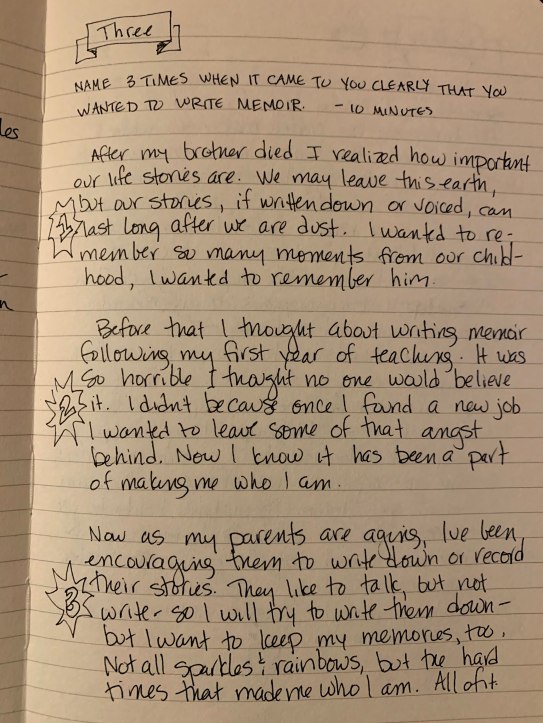 Three
NAME 3 TIMES WHEN IT CAME TO YOU CLEARLY THAT YOU
WANTED TO WRITE MEMOIR. - 10 MINUTES
After my brother died I realized how important
our life stories are. We may leave this earth,
but our stories, if written down or voiced, can
1 last long after we are dust. I wanted to re-
member so many moments from our child-
hood, I wanted to remember him.
Before that I thought about writing memoir
following my first year of teaching. It was
so horrible I thought no one would believe
2 it. I didn't because once I found a new job
I wanted to leave some of that angst
behind. Now I know it has been a part
of making me who I am.
Now as my parents are aging, I've been
encouraging them to write down or record
3 their stories. They like to talk, but not
write - so I will try to write them down -
but I want to keep my memories, too.
Not all sparkles & rainbows, but the hard
times that made me who I am. All of it